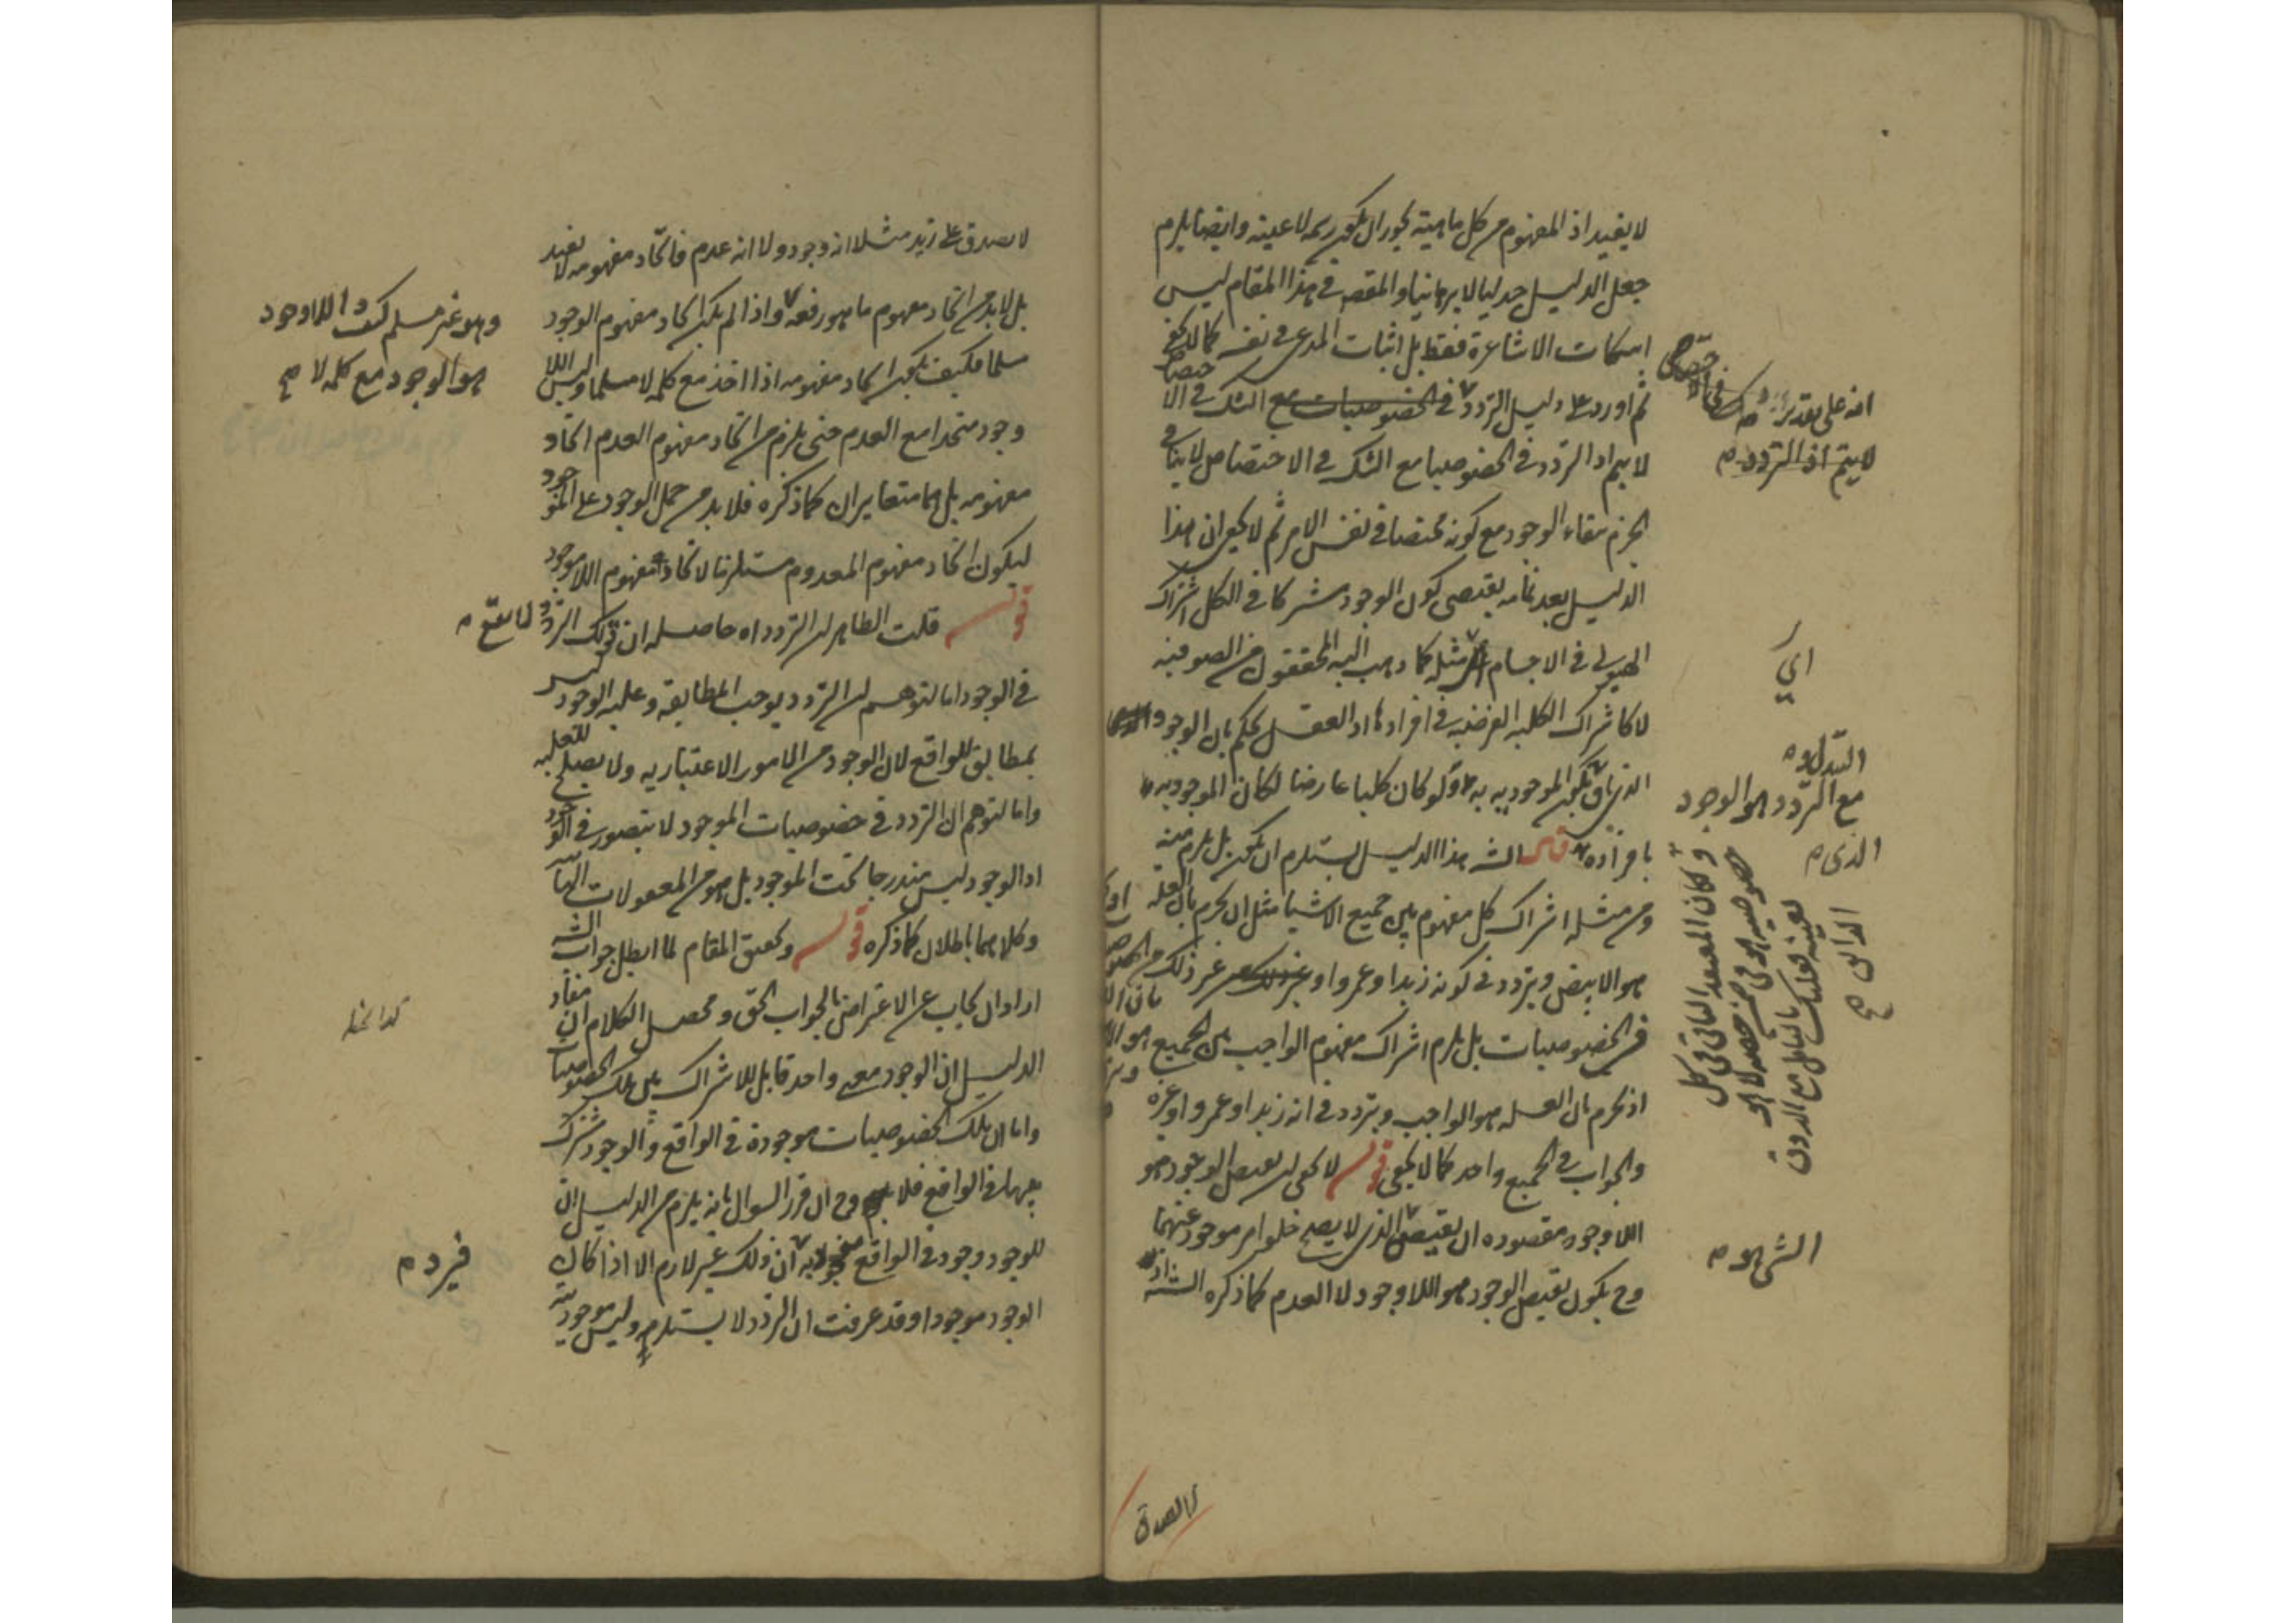 لا يفيد اذ المفهوم من كل ماهية يجوز ان يكون رسمه لا عينه وايضا يلزم
جعل الدليل جدليا لا برهانيا والمقصد في هذا المقام ليس
اسكات الاشاعرة فقط بل اثبات المدعى في نفسه كما لا يخفى
ثم اورد على دليل التردد في الخصوصيات مع الشك في الاختصاص
لا يتم اذ التردد في الخصوصيا مع الشك في الاختصاص لا ينافي
الجزم ببقاء الوجود مع كونه مختصا في نفس الامر ثم لا يخفى ان هذا
الدليل بعد تمامه يقتضي كون الوجود مشتركا في الكل اشتراك
الهيولى في الاجسام مثله كما ذهب اليه المحققون من الصوفية
لا كاشتراك الكلية العرضية في افرادها اذ العقل يحكم بان الوجود
الذي يكون الموجودية به ولو كان كليا عارضا لكان الموجودية
بافراده قال الش هذا الدليل يستلزم ان يكون بل يلزم منه
ومن مثله اشتراك كل مفهوم بين جميع الاشيا مثل ان نجزم بان العلة
هو الابيض ويتردد في كونه زيدا وعمروا او غير ذلك من
من الخصوصيات بل يلزم اشتراك مفهوم الواجب بين الجميع
اذ نجزم بان العلة هو الواجب ويتردد في انه زيد او عمرو او غيره
والجواب في الجميع واحد كما لا يخفى قوله لا يخفى ان نقيض الوجود هو
اللاوجود مقصوده ان نقيض الذي لا يصح خلو امر موجود عنهما
وح يكون نقيض الوجود هو اللاوجود لا العدم كما ذكره الش اذ
لا يصدق
انه على تقدير
لا يتم اذ التردد م
اي
مع التردد هو الوجود
الذي م
الش هو م
لا يصدق على زيد مثلا انه وجود ولا انه عدم فاتحاد مفهومه لا يفيد
بل لا بد من اتحاد مفهوم ما هو رفعه واذا لم يكن اتحاد مفهوم الوجود
مسلما فكيف يكون اتحاد مفهومه اذا اخذ مع كلمه لا مسلما وليس اللا
وجود متحدا مع العدم حتى يلزم من اتحاد مفهوم العدم اتحاد
مفهومه بل هما متغايران كما ذكره فلا بد من حمل الوجود على الموجود
ليكون اتحاد مفهوم المعدوم مستلزما لاتحاد مفهوم اللاموجود
قوله قلت الظاهر ان التردد اه حاصله ان ذلك التردد لا يقع م
في الوجود اما لتوهم ان التردد يوجب المطابقة وعلية الوجود ليس
بمطابق للواقع لان الوجود من الامور الاعتبارية ولا يصلح للعلية
واما لتوهم ان التردد في خصوصيات الموجود لا يتصور في الوجود
اذ الوجود ليس مندرجا تحت الموجود بل هو من المعقولات الثانية
وكلاهما باطلان كما ذكره قوله وتحقيق المقام لما ابطل جواب الش
اراد ان يجاب عن الاعتراض بالجواب الحق ومحصل الكلام ان مفاد
الدليل ان الوجود معنى واحد قابل للاشتراك بين تلك الخصوصيات
واما ان تلك الخصوصيات موجودة في الواقع والوجود مشترك
بينها في الواقع فلا وح ان قرر السوال بانه يلزم من الدليل ان
للوجود وجود في الواقع فجوابه ان ذلك غير لازم الا اذا كان
الوجود موجودا وقد عرفت ان التردد لا يستلزم وليس موجوديته
وهو غير مسلم كيف واللاوجود
هو الوجود مع كلمه لا صح
فيرد م